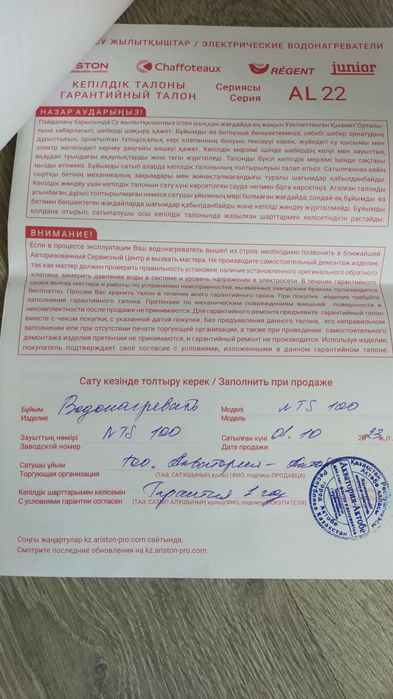 СУ ЖЫЛЫТҚЫШТАР / ЭЛЕКТРИЧЕСКИЕ ВОДОНАГРЕВАТЕЛИ
ARISTON Chaffoteaux RÉGENT junior
КЕПІЛДІК ТАЛОНЫ
ГАРАНТИЙНЫЙ ТАЛОН
Сериясы
Серия
AL 22
НАЗАР АУДАРЫҢЫЗ!
Пайдалану барысында Су жылытқышыңыз істен шыққан жағдайда ең жақын Уәкілеттенген Қызмет Орталы-
ғына хабарласып, шеберді шақыру қажет. Бұйымды өз бетіңізше бөлшектемеңіз, себебі шебер орнатудың
дұрыстығын, орнатылған түпнұсқалық кері клапанның болуын тексеруі керек, жүйедегі су қысымы мен
электр желісіндегі кернеу деңгейін өлшеуі қажет. Кепілдік мерзімі ішінде шебердің келуі мен зауыттық
ақаудан туындаған ақаулықтарды жою тегін жүргізіледі. Талонды бүкіл кепілдік мерзімі ішінде сақтау-
ыңызды өтінеміз. Бұйымды сатып аларда кепілдік талонының толтырылуын талап етіңіз. Сатылғаннан кейін
сыртқы бетінің механикалық зақымдары мен жинақталмағандығы туралы шағымдар қабылданбайды.
Кепілдік жөндеу үшін кепілдік талонын сату күні көрсетілген сауда чегімен бірге көрсетіңіз. Аталған талонды
ұсынбаған, дұрыс толтырылмаған немесе сатушы ұйымның мөрі болмаған жағдайда, сондай-ақ бұйымды өз
бетімен бөлшектеген жағдайларда шағымдар қабылданбайды және кепілді жөндеу жүргізілмейді. Бұйымды
қолдана отырып, сатыпалушы осы кепілдік талонында жазылған шарттармен келісетіндігін растайды.
ВНИМАНИЕ!
Если в процессе эксплуатации Ваш водонагреватель вышел из строя, необходимо позвонить в ближайший
Авторизованный Сервисный Центр и вызвать мастера. Не производите самостоятельный демонтаж изделия,
так как мастер должен проверить правильность установки, наличие установленного оригинального обратного
клапана, замерить давление воды в системе и уровень напряжения в электросети. В течение гарантийного
срока выезд мастера и работы по устранению неисправностей, вызванных заводским браком, производятся
бесплатно. Просим Вас хранить талон в течение всего гарантийного срока. При покупке изделия требуйте
заполнения гарантийного талона. Претензии по механическим повреждениям внешней поверхности и
некомплектности после продажи не принимаются. Для гарантийного ремонта предъявите гарантийный талон
вместе с чеком покупки, с указанной датой покупки. Без предъявления данного талона, его неправильном
заполнении или при отсутствии печати торгующей организации, а также при проведении самостоятельного
демонтажа изделия претензии не принимаются, и гарантийный ремонт не производится. Используя изделие,
покупатель подтверждает своё согласие с условиями, изложенными в данном гарантийном талоне.
Сату кезінде толтыру керек / Заполнить при продаже
Бұйым
Изделие
Водонагреватель
Моделі
Модель
NTS 100
Зауыттық нөмірі
Заводской номер
NTS 100
Сатылған күні
Дата продажи
10
Сатушы ұйым
Торгующая организация
ТОО. Акватория-
(ТАӘ, САТУШЫНЫҢ қолы) (ФИО, подпись ПРОДАВЦА)
Кепілдік шарттарымен келісемін
С условиями гарантии согласен
Гарантия 1 год
(ТАӘ, САТЫП АЛУШЫНЫҢ қолы) (ФИО, подпись ПОКУПАТЕЛЯ)
Акватория-Актобе
Соңғы жаңартулар kz.ariston-pro.com сайтында.
Смотрите последние обновления на kz.ariston-pro.com